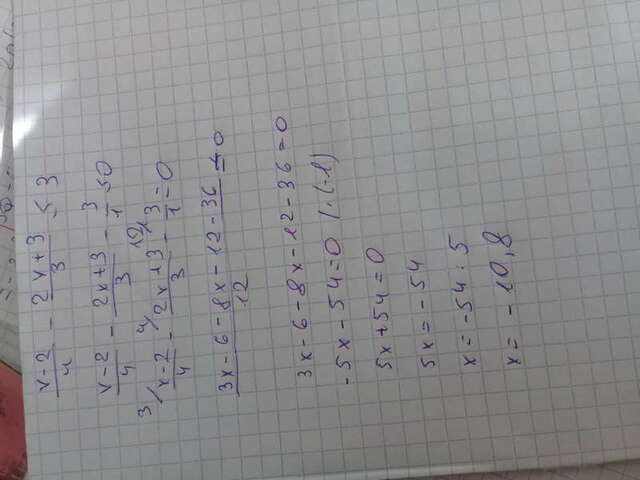 x-2/4 - 2x+3/3 ≤ 3
x-2/4 - 2x+3/3 - 3/1 ≤ 0
3/ x-2/4 - 4/ 2x+3/3 - 12/ 3/1 = 0
3x-6-8x-12-36/12 = 0
3x-6-8x-12-36=0
-5x-54=0 /·(-1)
5x+54=0
5x=-54
x=-54:5
x=-10,8